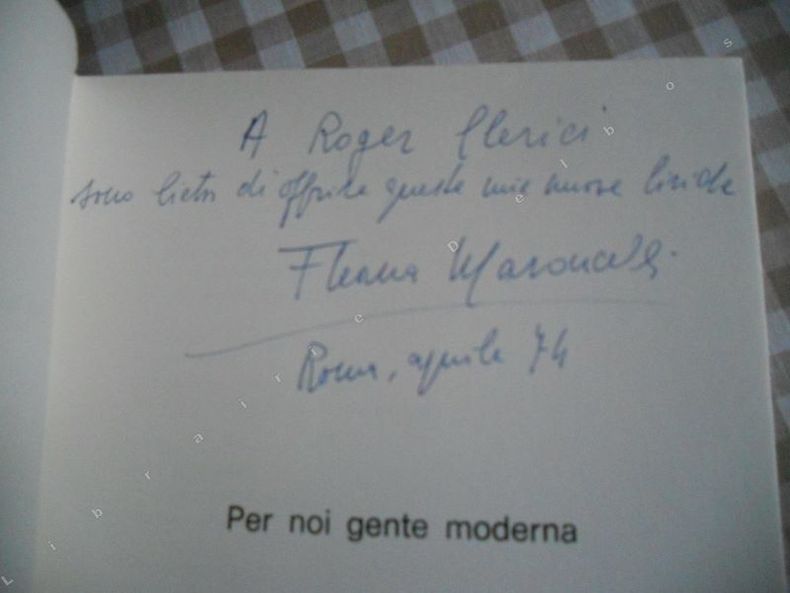 A Roger Clerici
sono lieta di offrire queste mie nuove liriche
Roma, aprile 74
Per noi gente moderna
Librairie Delbos